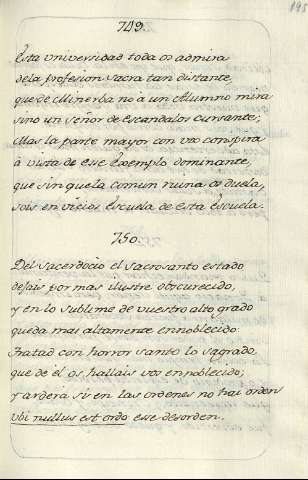 195
749.
Esta universidad toda os admira
de la profesion sacra tan distante,
que de Minerba no à un Alumno mira
sino un señor de escandalos cursante;
Mas la parte mayor con vos conspira
à vista de ese Exemplo dominante,
que sin que la comun ruina os duela,
sois en vicios Escuela de esta Escuela.
750.
Del sacerdocio el sacrosanto estado
dejais por mas ilustre obscurecido,
y en lo sublime de vuestro alto grado
queda mas altamente ennoblecido:
Tratad con horror santo lo sagrado,
que de el os hallais vos ennoblecido;
y arderà si en las ordenes no hai orden
ubi nullus est ordo ese desorden.